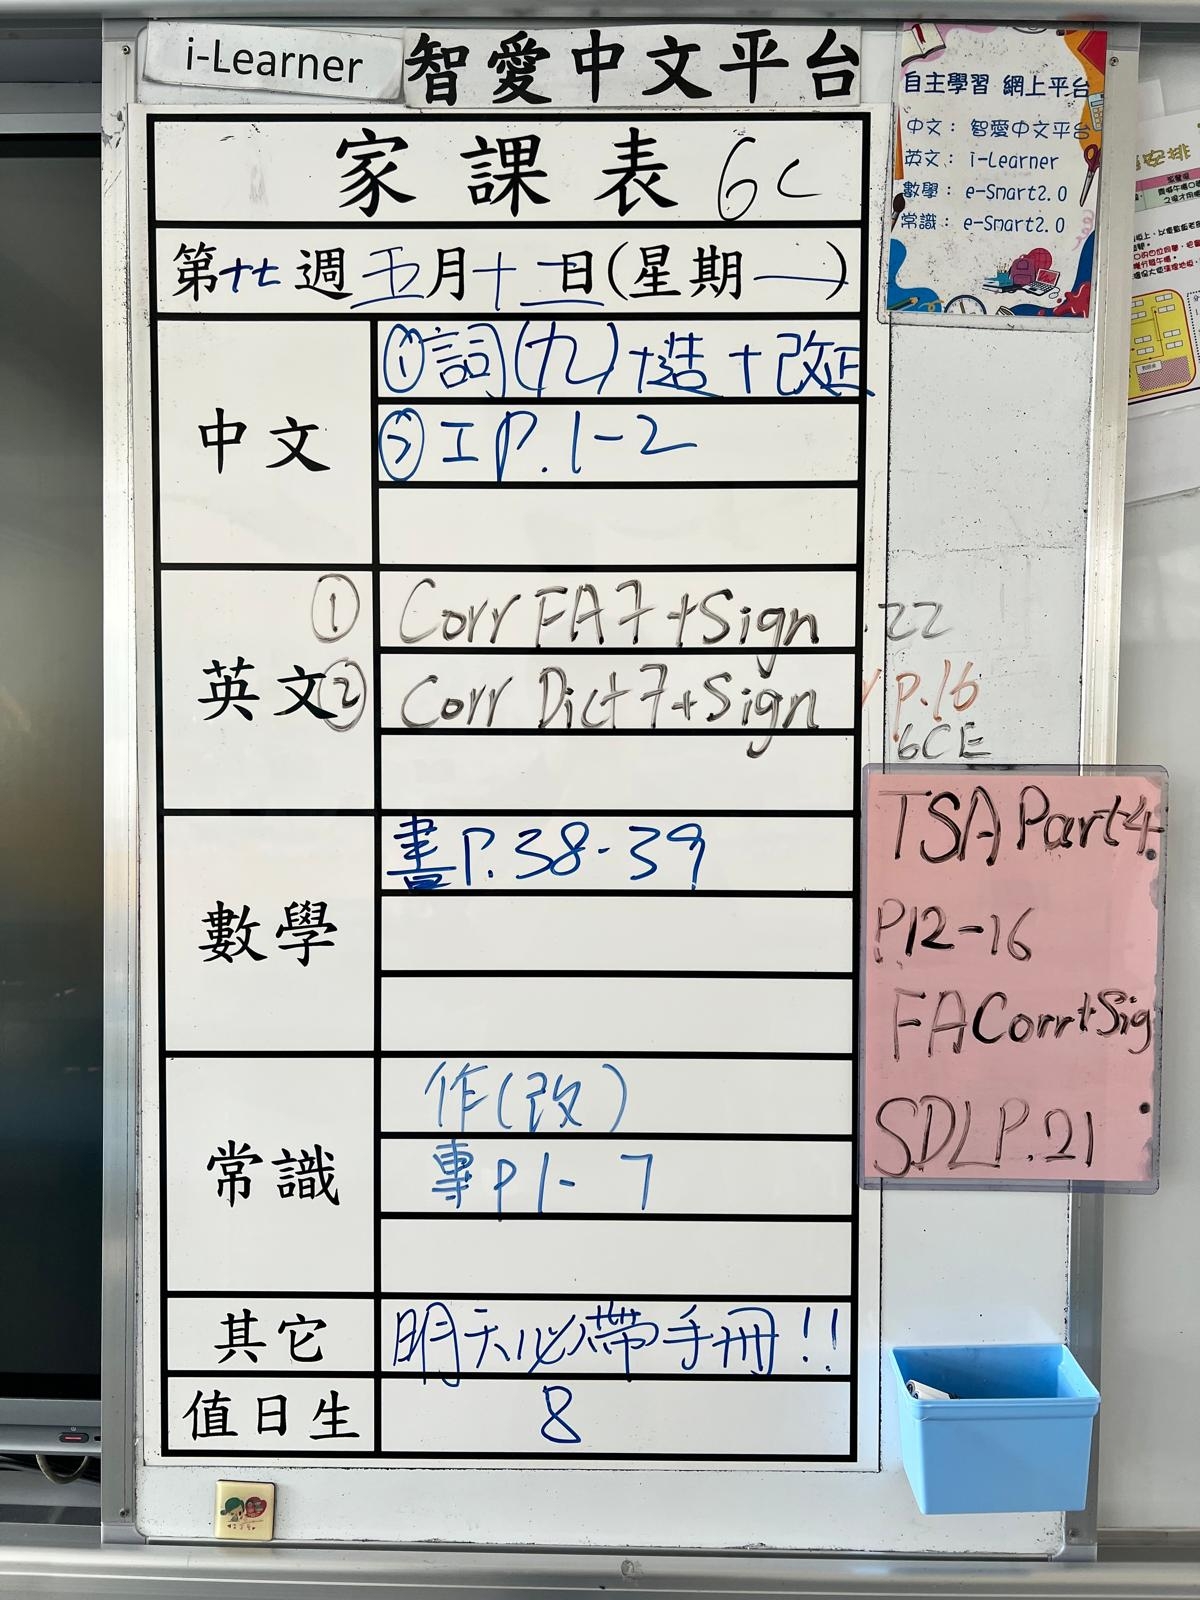 i-Learner
智愛中文平台
家課表 6C
第十七週五月十二日(星期一)
中文
①詞(九)+造+改正
②工P.1-2
英文
① Corr FA7+Sign
② Corr Dict7+Sign
數學
書P.38-39
常識
作(改)
專P1-7
其它
明天必帶手冊!!
值日生
8
自主學習 網上平台
中文：智愛中文平台
英文：i-Learner
數學：e-Smart2.0
常識：e-Smart2.0
22
P.16
6CE
TSA Part4
P.12-16
FA Corr+Sig
SDL P.21
安排